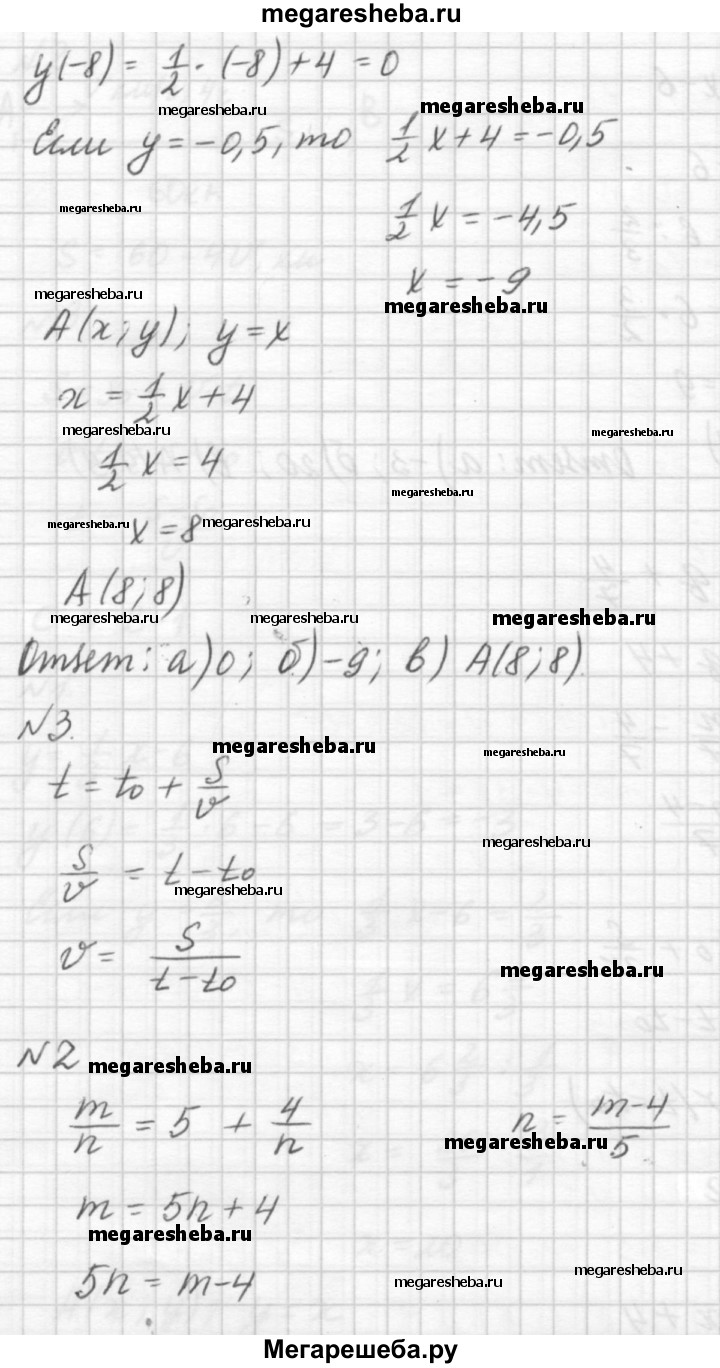 megaresheba.ru
y(-8) = 1/2 · (-8) + 4 = 0
megaresheba.ru megaresheba.ru
Если y = -0,5, то 1/2 x + 4 = -0,5
megaresheba.ru
1/2 x = -4,5
x = -9
megaresheba.ru megaresheba.ru
A(x; y); y = x
x = 1/2 x + 4
megaresheba.ru megaresheba.ru
1/2 x = 4
megaresheba.ru
megaresheba.ru x = 8 megaresheba.ru
A(8; 8)
megaresheba.ru megaresheba.ru megaresheba.ru
Ответ: а) 0; б) -9; в) A(8; 8).
№3.
megaresheba.ru megaresheba.ru
t = t₀ + S/v
megaresheba.ru
S/v = t - t₀
megaresheba.ru
v = S/(t - t₀)
megaresheba.ru
№2
megaresheba.ru
m/n = 5 + 4/n
n = (m-4)/5
megaresheba.ru
m = 5n + 4
megaresheba.ru
5n = m - 4
megaresheba.ru megaresheba.ru
Мегарешеба.ру